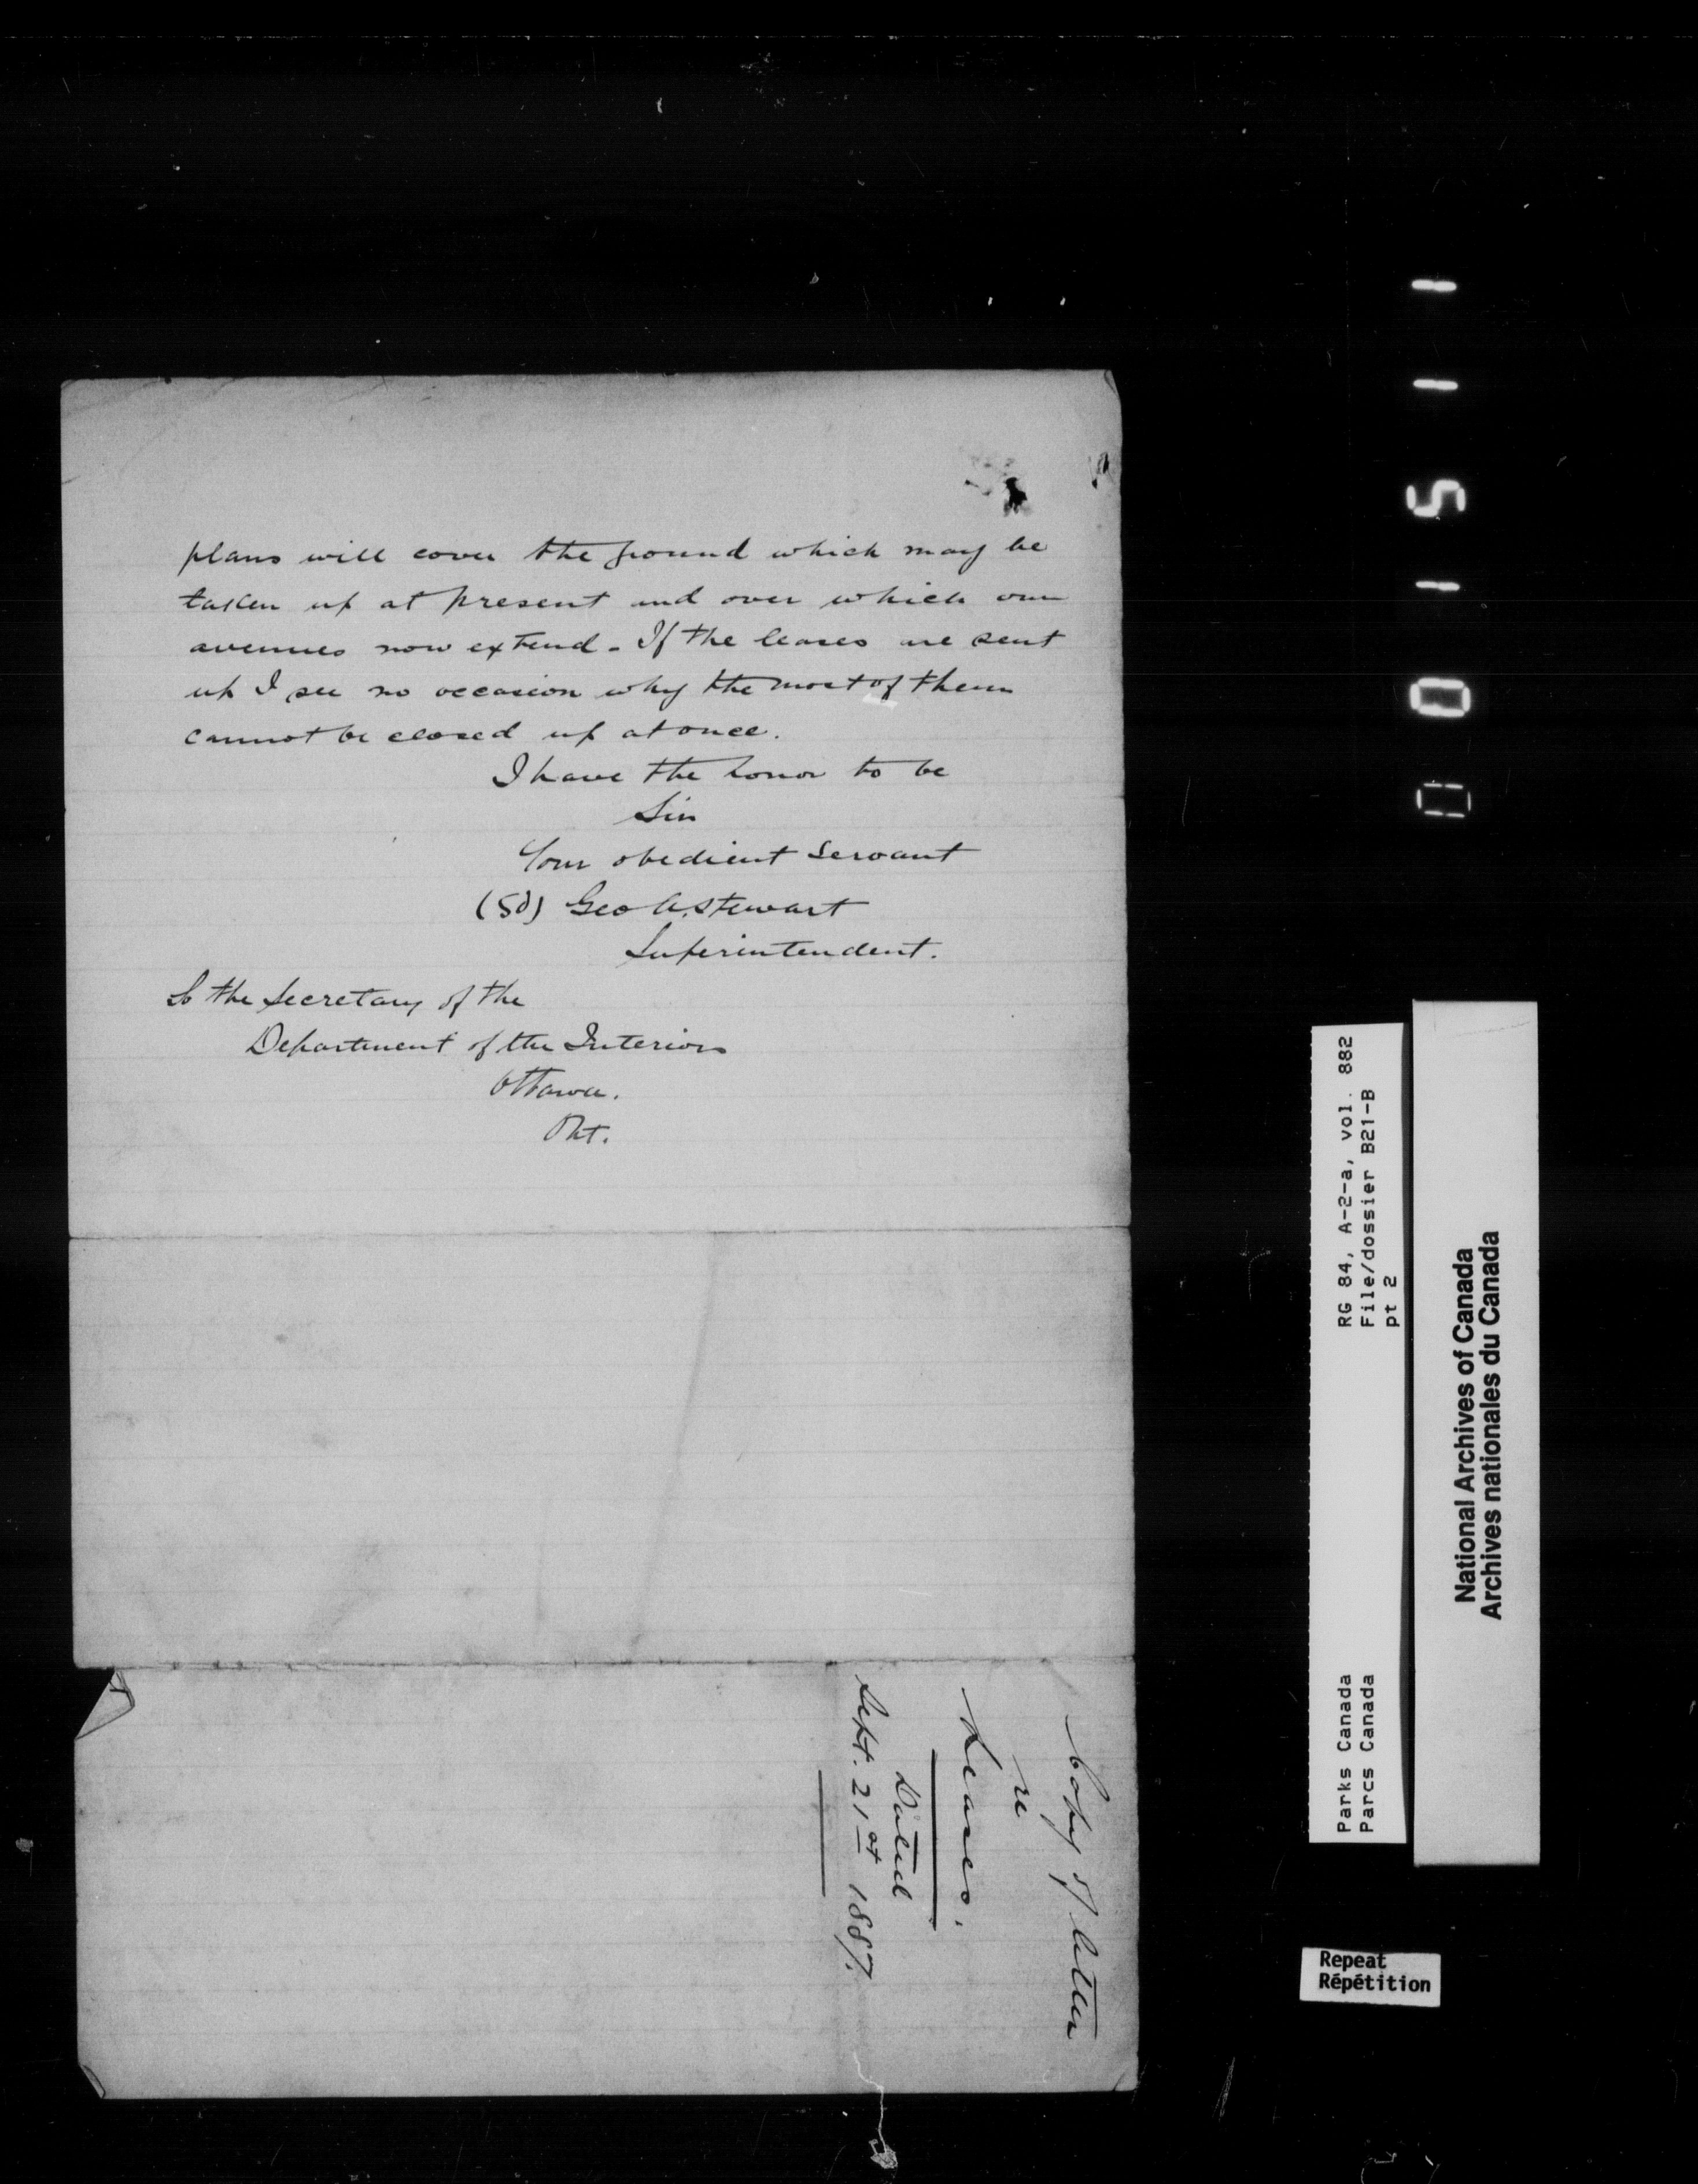 plans will cover the ground which may be
taken up at present and over which our
avenues now extend - If the leases are sent
up I see no occasion why the most of them
cannot be closed up at once.
I have the honor to be
Sir
Your obedient Servant
(Sd) Geo A. Stewart
Superintendent.
To the Secretary of the
Department of the Interior
Ottawa.
Ont.
Copy of letter
re
Leases.
Dated
Sept. 21st 1887.
001511
RG 84, A-2-a, vol. 882
File/dossier B21-B
pt 2
Parks Canada
Parcs Canada
National Archives of Canada
Archives nationales du Canada
Repeat
Répétition